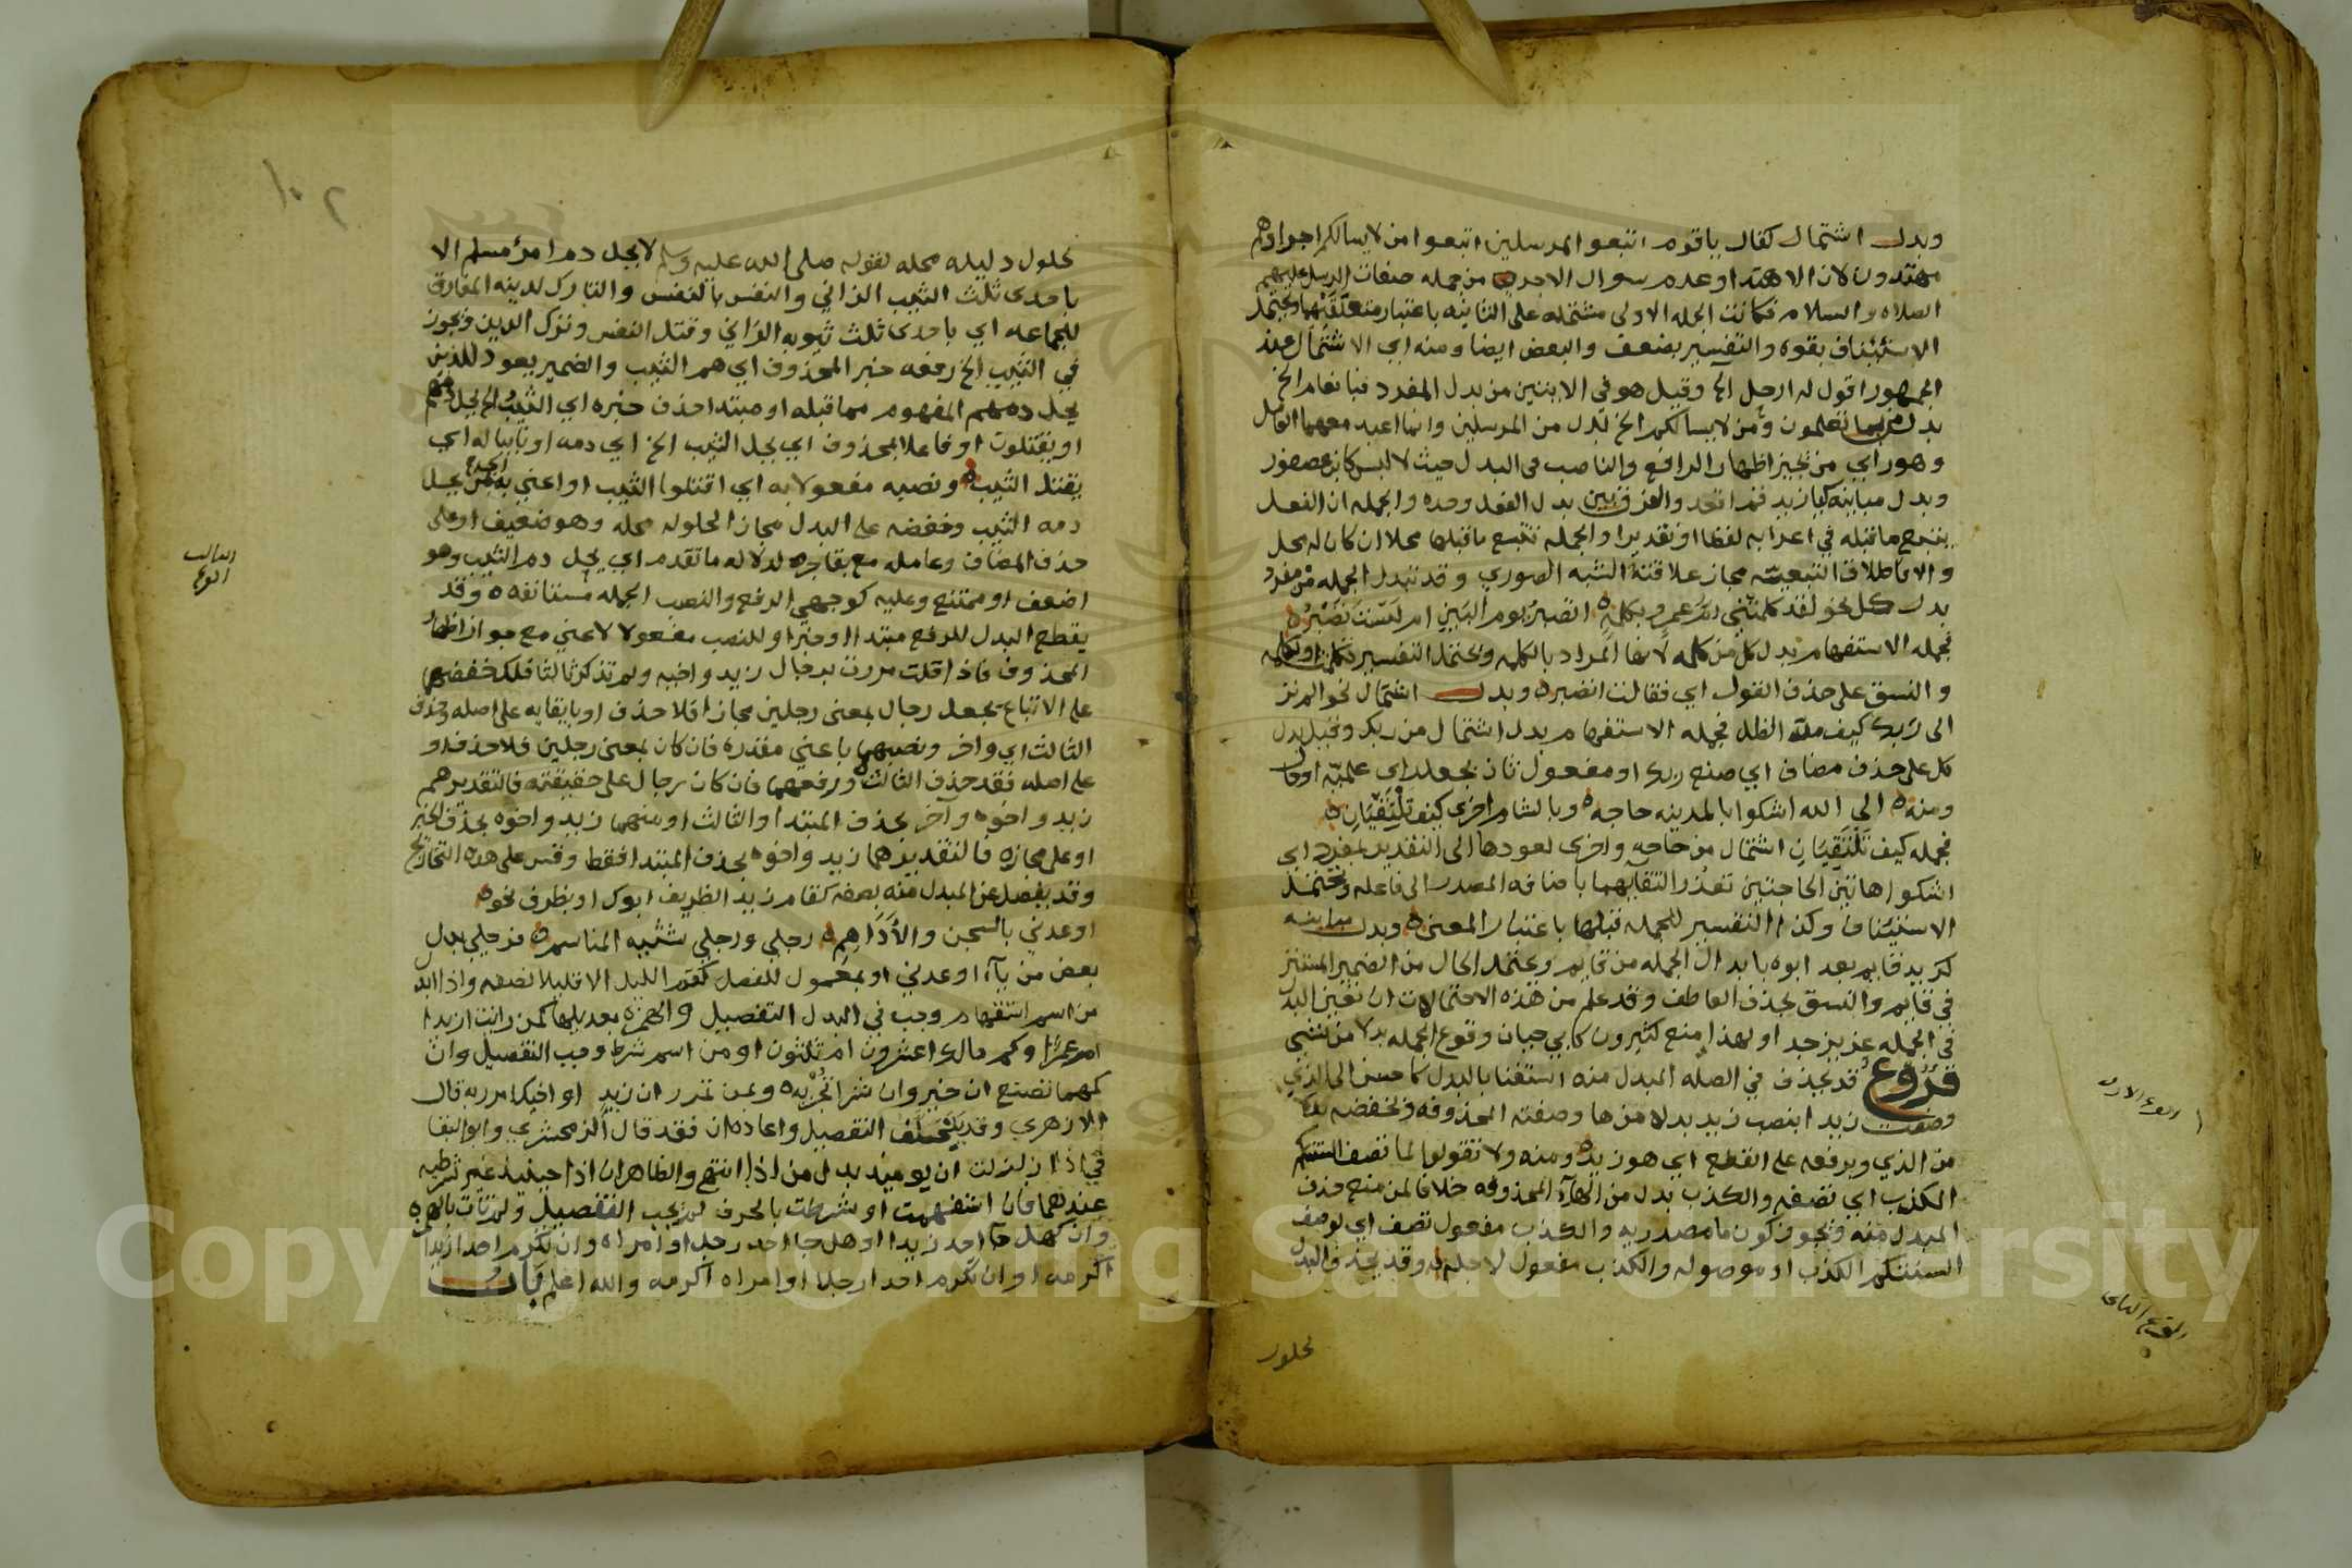 وبدل اشتمال كقال ياقوم اتبعوا المرسلين اتبعوا من لا يسالكم اجرا وهم
مهتدون لان الاهتدا وعدم سوال الاجر من جمله صفات الرسل عليهم
الصلاه والسلام فكانت الجمله الاولى مشتمله على الثانيه باعتبار متعلقيهما ويحتمل
الاستئناف بقوه والتفسير بضعف والبعض ايضا ومنه اي الاشتمال عند
الجمهور اقول له ارحل الخ وقيل هو في الايتين من بدل المفرد فبانعام الخ
بدل من بما تعلمون ومن لا يسالكم الخ بدل من المرسلين وانما اعيد معهما العامل
وهو راي من يجيز اظهار الرافع والناصب في البدل حيث لا لبس كابن عصفور
وبدل مباينه كيا زيد قم اقعد والفرق بين بدل الفعل وحده والجمله ان الفعل
يتبع ما قبله في اعرابه لفظا او تقديرا والجمله تتبع ما قبلها محلا ان كان له محل
والا فاطلاق التبعيه مجاز علاقته الشبه الصوري وقد تبدل الجمله من مفرد
بدل كل نحو لقد كلمتني ام عمرو بكلمة اتصبر يوم البين ام لست تصبر
فجمله الاستفهام بدل كل من كلمه لانها المراد بالكلمه ويحتمل التفسير
والنسق على حذف القول اي فقالت اتصبر وبدل اشتمال نحو الم تر
الى ربك كيف مد الظل فجمله الاستفهام بدل اشتمال من ربك وقيل بدل
كل على حذف مضاف اي صنع ربك او مفعول ثان بجعل راي علميه
ومنه الى الله اشكوا بالمدينه حاجه وبالشام اخرى كيف تلتقيان
فجمله كيف تلتقيان اشتمال من حاجه واخرى لعودها الى التقدير بمفرد اي
اشكوا هاتين الحاجتين تعذر التقايهما باضافه المصدر الى فاعله ويحتمل
الاستئناف وكذا التفسير للجمله قبلها باعتبار المعنى وبدل مباينه
كزيد قايم بعد ابوه بابدال الجمله من قايم ويحتمل الحال من الضمير المستتر
في قايم والنسق بحذف العاطف وقد علم من هذه الاحتمالات ان تعين البدل
في الجمله عزيز جدا ولهذا منع كثيرون كابي حيان وقوع الجمله بدلا من شي
فروع قد يحذف في الصله المبدل منه استغنا بالبدل كاحسن الى الذي
وصفت زيدا بنصب زيد بدلا من ها وصفته المحذوفه وبخفضه بدلا
من الذي وبرفعه على القطع اي هو زيد ومنه ولا تقولوا لما تصف السنتكم
الكذب اي تصفه والكذب بدل من الهاء المحذوفه خلافا لمن منع حذف
المبدل منه ويجوز كون ما مصدريه والكذب مفعول تصف اي لوصف
السنتكم الكذب او موصوله والكذب مفعول لاجله وقد يحذف البدل
الفرع الاول
الفرع الثاني
لحلول
١٠٢
لحلول دليله محله لقوله صلى الله عليه وسلم لا يحل دم امرئ مسلم الا
باحدى ثلث الثيب الزاني والنفس بالنفس والتارك لدينه المفارق
للجماعه اي باحدى ثلث ثيوبه الزاني وقتل النفس وترك الدين ويجوز
في الثيب الخ رفعه خبر المحذوف اي هم الثيب والضمير يعود للذين
يحل دمهم المفهوم مما قبله او مبتدا حذف خبره اي الثيب الخ يحل دمهم
او يقتلون او فاعلا بمحذوف اي يحل الثيب الخ اي دمه او نايبا له اي
يقتل الثيب ونصبه مفعولا به اي اقتلوا الثيب او اعني به من يحل
دمه الثيب وخفضه على البدل مجازا لحلوله محله وهو ضعيف او على
حذف المضاف وعامله مع بقا جره لدلاله ما تقدم اي يحل دم الثيب وهو
اضعف او ممتنع وعليه كوجهي الرفع والنصب الجمله مستانفه وقد
يقطع البدل للرفع مبتدا او خبرا وللنصب مفعولا لاعني مع جواز اظهار
المحذوف فاذا قلت مررت برجال زيد واخيه ولم تذكر ثالثا فلك خفضهما
على الاتباع بجعل رجال بمعنى رجلين مجازا فلا حذف او بابقايه على اصله وحذف
الثالث اي واخر ونصبهما باعني مقدره فان كان بمعنى رجلين فلا حذف او
على اصله فقد حذف الثالث ورفعهما فان كان رجال على حقيقته فالتقدير هم
زيد واخوه وآخر بحذف المبتدا والثالث او منهم زيد واخوه بحذف الخبر
او على مجازه فالتقدير هما زيد واخوه بحذف المبتدا فقط وقس على هذه
وقد يفصل عن المبدل منه بصفه كقام زيد الظريف ابوك او بظرف نحو
اوعدني بالسجن والأداهم رجلي ورجلي شثنه المناسم فرجلي بدل
بعض من ياء اوعدني او بمعمول للفعل كقم الليل الا قليلا نصفه واذا ابدل
من اسم استفهام وجب في البدل التفصيل والهمزه بعد يليها كمن رايت ازيدا
ام عمرا وكم مالك اعشرون ام ثلثون او من اسم شرط وجب التفصيل وان
كمهما تصنع ان خير وان شر تجز به وبمن تمرر ان زيد او اخيك امرر به قال
الازهري وقد يتخلف التفصيل واعاده ان فقد قال الزمخشري وابو البقا
في اذا زلزلت ان يوميذ بدل من اذا انتهى والظاهر ان اذا حينيذ غير شرطيه
عندهما فان استفهمت او شرطت بالحرف لم يجب التفصيل ولم تات بالهمزه
وان كهل جآ احد زيد او هل جا احد رجل او امراه وان تكرم احدا زيدا
اكرمه او ان تكرم احدا رجلا او امراه اكرمه والله اعلم باب
الفرع الثالث
Copyright © King Saud University